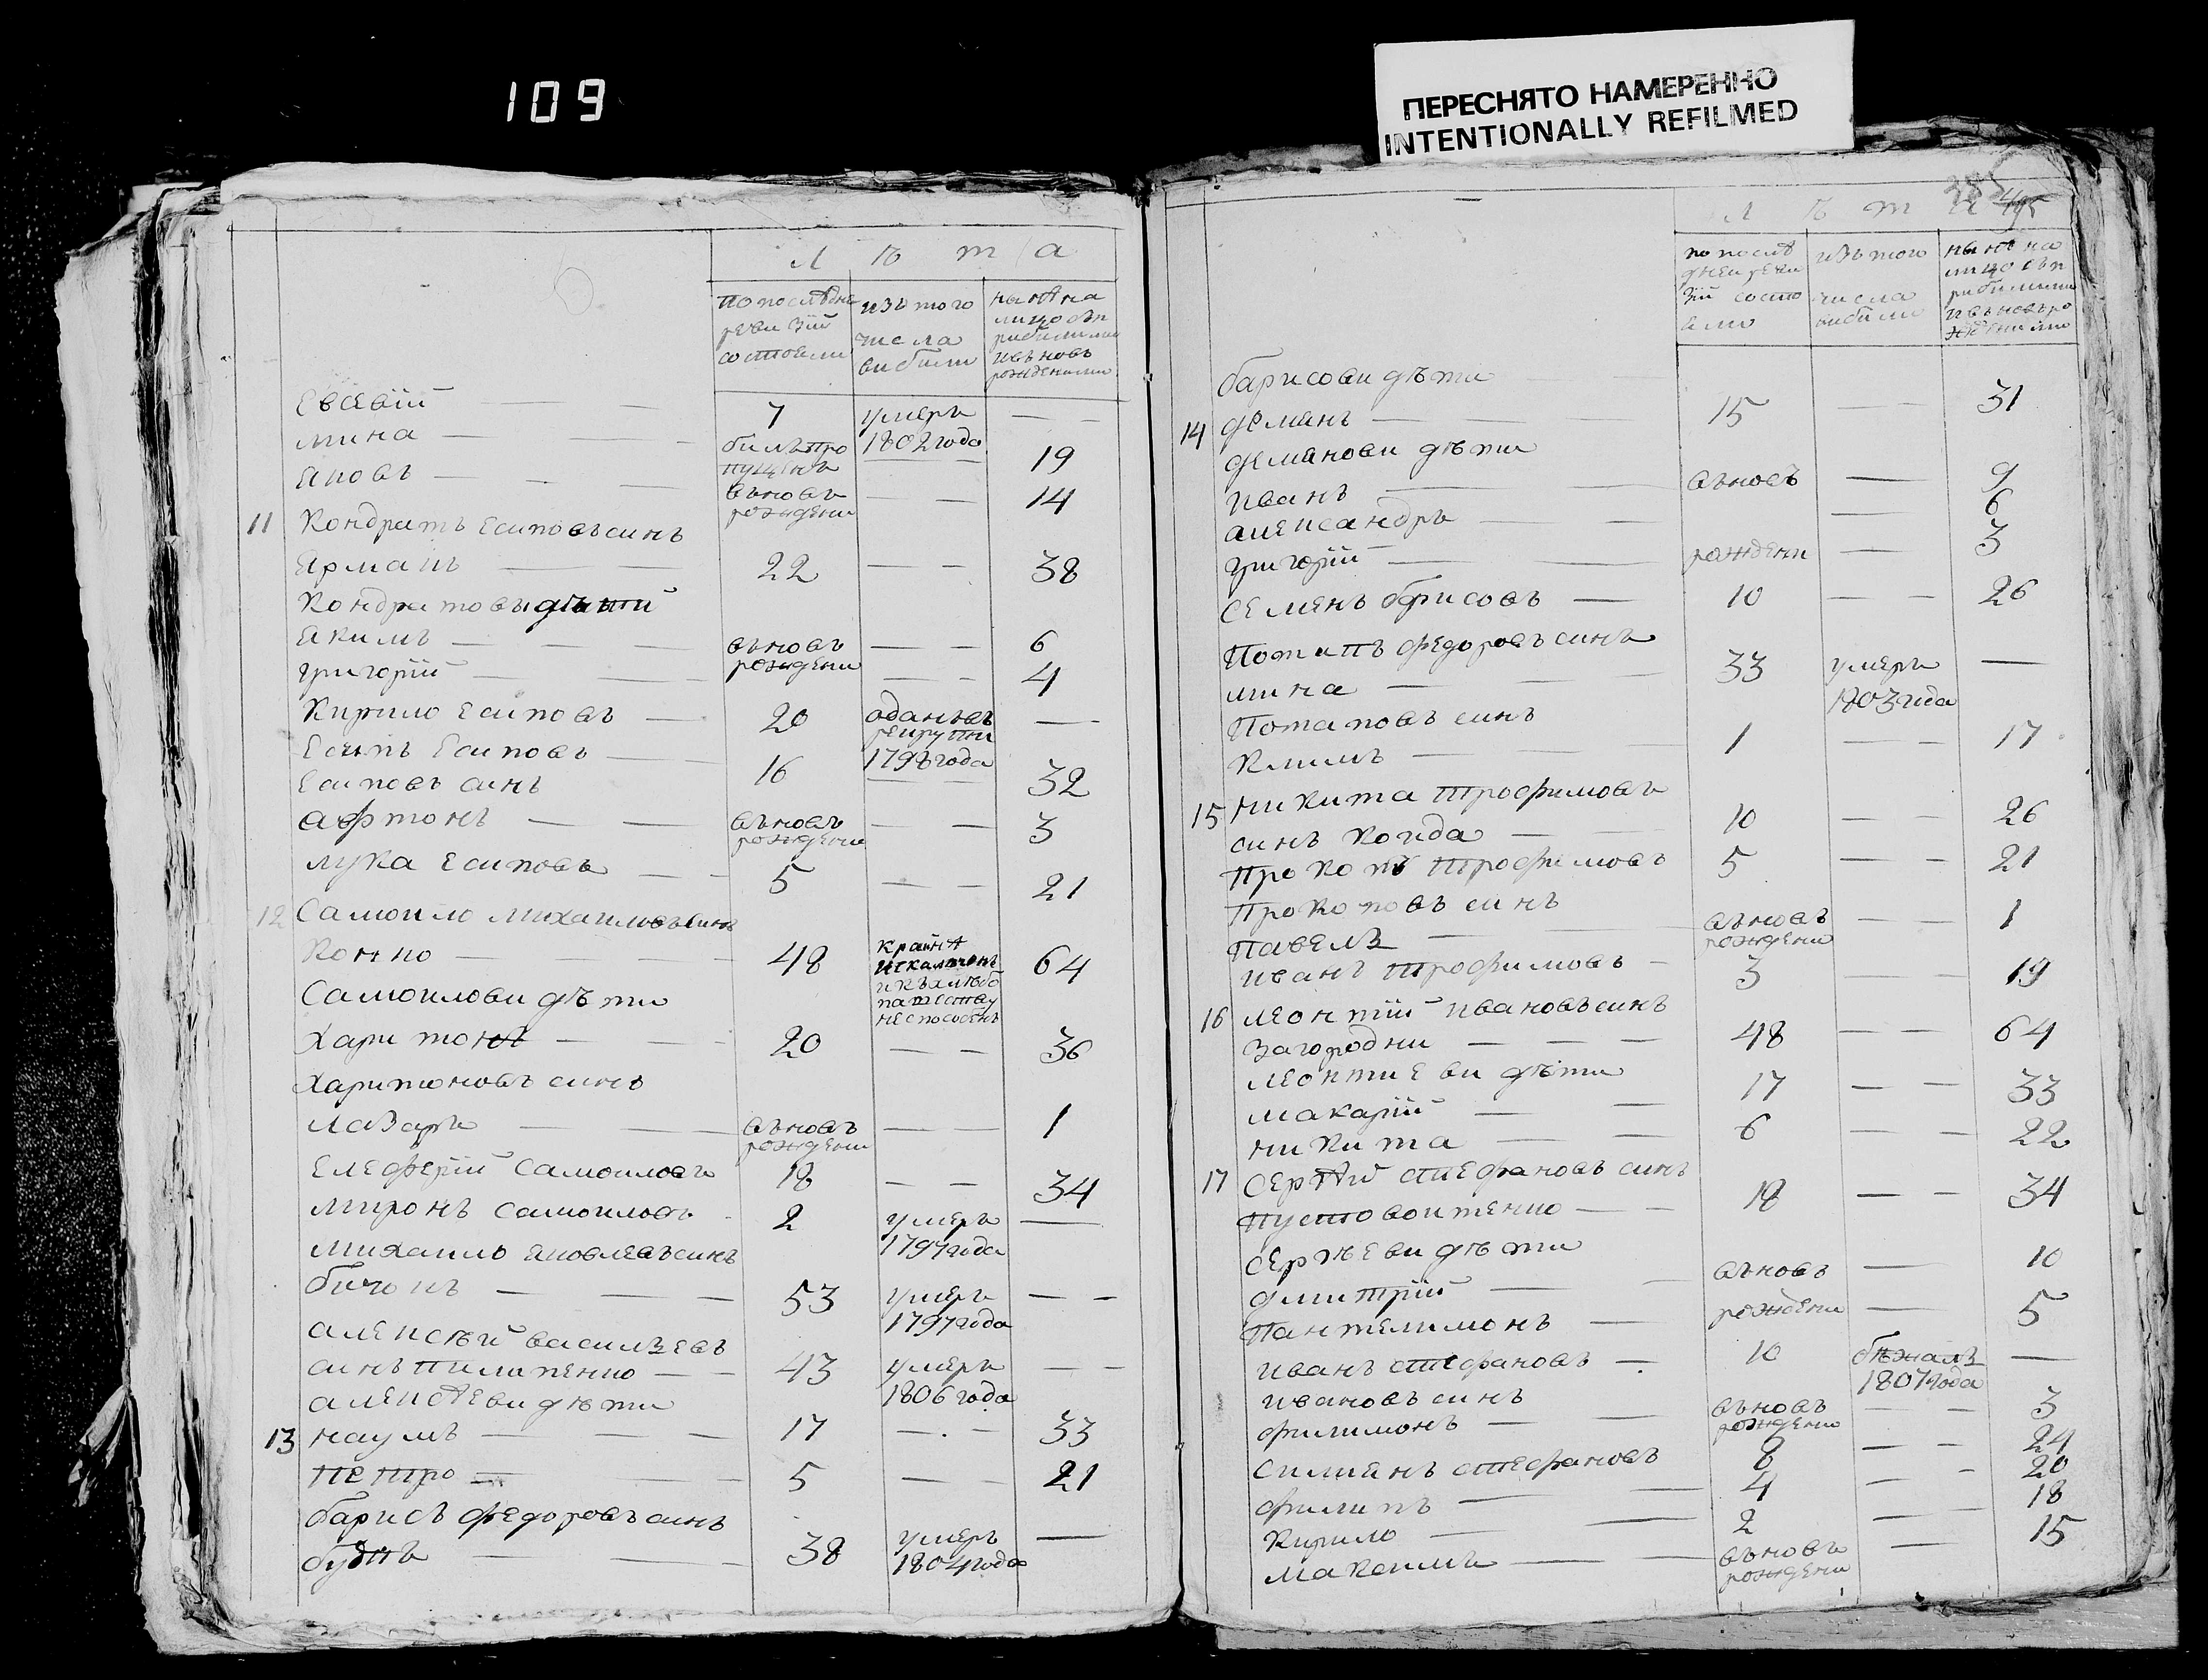 109
ПЕРЕСНЯТО НАМЕРЕННО
INTENTIONALLY REFILMED
Л ѣ т а
по последне ревизіи состояли
изъ того числа выбыли
нынѣ на лицо съ прибылыми и въновь рожденими
Евсевій — 7 умеръ 1802 года —
Мина — билъ пропущенъ — 19
Яковъ — въновь рождени — 14
11 Кондратъ Есиповъ синъ
Ярмакъ — 22 — 38
Кондратови дѣтй
Якимъ — въновь рождени — 6
Григорій — 4
Кирило Есиповъ — 20 оданъ въ рекруты 1798 года —
Есипъ Есиповъ — 16 — 32
Есиповъ синъ
Афтонъ — въновь рождени — 3
Лука Есиповъ — 5 — 21
12 Самоило Михаиловъ синъ
Кочко — 48 крайнѣ искалѣченъ и къ хлѣбопашеству неспособенъ 64
Самоилови дѣти
Харитонъ — 20 — 36
Харитоновъ синъ
Лазарь — въновь рождени — 1
Елеферій Самоиловъ 18 — 34
Миронъ Самоиловъ 2 умеръ 1797 года —
Михаило Яковлевъ синъ
Бичокъ — 53 умеръ 1797 года —
Алексѣй Василъевъ
синъ Пилипенко — 43 умеръ 1806 года —
Алексѣеви дѣти
13 Наумъ — 17 — 33
Петро — 5 — 21
Барисъ Федоровъ синъ
— 38 умеръ 1804 года —
Л ѣ т а
по последней ревизій состояло
изъ того числа выбыло
нынѣ на лицо съ прибылыми и въновь рожденими
Барисови дѣти
14 Демянъ — 15 — 31
Демянови дѣти
Иванъ — въновь — 9
Александръ — 6
Григорій — рождени — 3
Семенъ Борисовъ — 10 — 26
Потапъ Федоровъ синъ
Мина — 33 умеръ 1803 года —
Потаповъ синъ
Климъ — 1 — 17
15 Никита Трофимовъ
синъ Койда — 10 — 26
Прокопъ Трофимовъ 5 — 21
Прокоповъ синъ
Павелъ — въновь рождени — 1
Иванъ Трофимовъ — 3 — 19
16 Леонтій Ивановъ синъ
Загородни — 48 — 64
Леонтиеви дѣти
Макарій — 17 — 33
Никита — 6 — 22
17 Сергѣй Стефановъ синъ
Пустовойтенко — 18 — 34
Сержеви дѣти
Дмитрій — въновь — 10
Пантелимонъ — рождени — 5
Иванъ Стефановъ — 10 бѣжалъ 1807 года —
Ивановъ синъ
Филимонъ — въновь рождени — 3
Силиянъ Стефановъ 8 — 24
Филипъ — 4 — 20
Кирило — 2 — 18
Максимъ — въновь рождени — 15